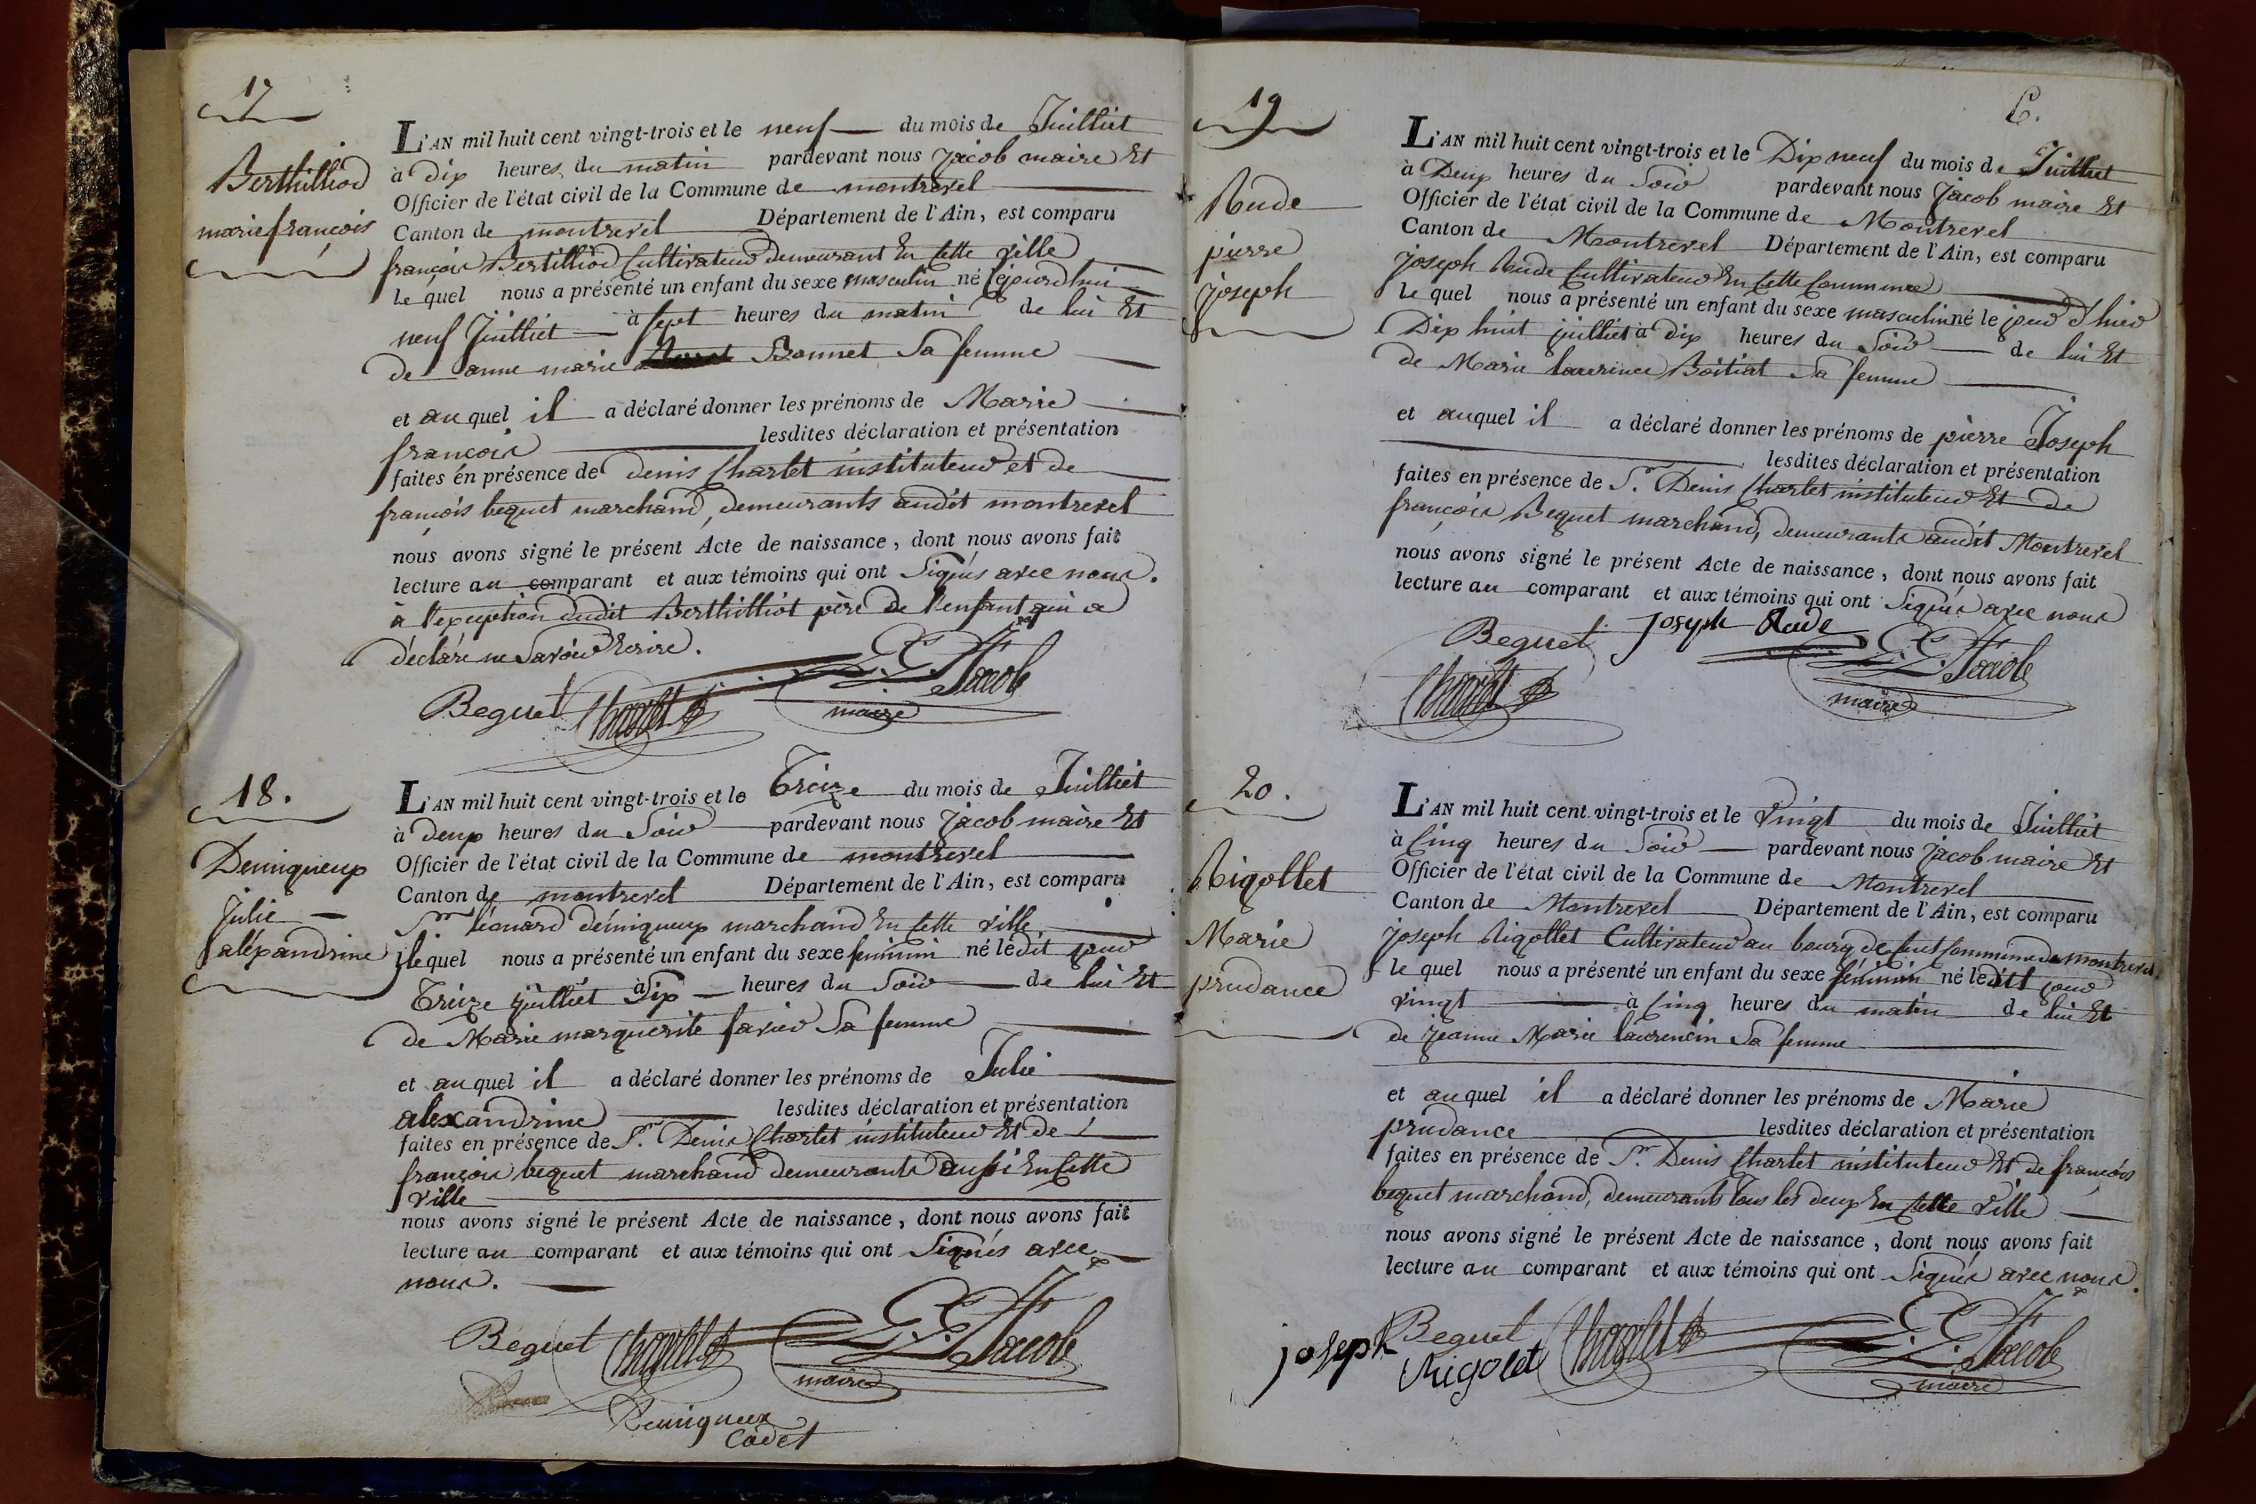 17
Berthilliod
marie françois
L'AN mil huit cent vingt-trois et le neuf du mois de Juilliet
à dix heures du matin pardevant nous Jacob maire Et
Officier de l'état civil de la Commune de montrevel
Canton de montrevel Département de l'Ain, est comparu
françois Bertilliod Cultivateur demeurant En cette ville
le quel nous a présenté un enfant du sexe masculin né cejourdhui
neuf Juilliet à sept heures du matin de lui Et
de anne marie Bonnet Sa femme
et au quel il a déclaré donner les prénoms de Marie
françois lesdites déclaration et présentation
faites en présence de denis Charlet instituteur et de
françois bequet marchand, demeurants audit montrevel
nous avons signé le présent Acte de naissance, dont nous avons fait
lecture au comparant et aux témoins qui ont Signés avec nous.
à l'exception dudit Berthilliot père de l'enfant qui a
déclaré ne Savoir Ecrire.
Bequet Charlet Jacob
maire
18.
Deniqueux
Julie
aléxandrine
L'AN mil huit cent vingt-trois et le Treize du mois de Juilliet
à deux heures du Soir pardevant nous Jacob maire Et
Officier de l'état civil de la Commune de montrevel
Canton de montrevel Département de l'Ain, est comparu
Sr léonard déniqueux marchand En cette ville
lequel nous a présenté un enfant du sexe feminin né lédit jour
Treize juilliet à Six heures du Soir de lui Et
de Marie marguerite favier Sa femme
et au quel il a déclaré donner les prénoms de Julie
alexandrine lesdites déclaration et présentation
faites en présence de Sr. Denis Charlet instituteur Et de
françois bequet marchand demeurants aussi En cette
ville
nous avons signé le présent Acte de naissance, dont nous avons fait
lecture au comparant et aux témoins qui ont Signés avec
nous.
Bequet Charlet Jacob
maire
Deniqueux
Cadet
19
Rude
pierre
joseph
L'AN mil huit cent vingt-trois et le Dix neuf du mois de Juilliet
à Deux heures du Soir pardevant nous Jacob maire Et
Officier de l'état civil de la Commune de Montrevel
Canton de Montrevel Département de l'Ain, est comparu
joseph Rude Cultivateur En cette Commune
le quel nous a présenté un enfant du sexe masculin né le jour d'hier
Dix huit juilliet à dix heures du Soir de lui Et
de Marie laurence Boitiat Sa femme
et auquel il a déclaré donner les prénoms de pierre Joseph
lesdites déclaration et présentation
faites en présence de Sr. Denis Charlet instituteur Et de
françois Bequet marchand, demeurants audit Montrevel
nous avons signé le présent Acte de naissance, dont nous avons fait
lecture au comparant et aux témoins qui ont Signés avec nous
Bequet Joseph Rude Jacob
Charlet maire
20.
Rigollet
Marie
prudance
L'AN mil huit cent vingt-trois et le vingt du mois de Juilliet
à Cinq heures du Soir pardevant nous Jacob maire Et
Officier de l'état civil de la Commune de Montrevel
Canton de Montrevel Département de l'Ain, est comparu
joseph Rigollet Cultivateur au bourg de Cuet Commune de montrevel.
le quel nous a présenté un enfant du sexe féminin né ledit jour
vingt à Cinq heures du matin de lui Et
de jeanne Marie laurencin Sa femme
et auquel il a déclaré donner les prénoms de Marie
prudance lesdites déclaration et présentation
faites en présence de Sr. Denis Charlet instituteur Et de françois
bequet marchand, demeurants tous les deux En cette ville
nous avons signé le présent Acte de naissance, dont nous avons fait
lecture au comparant et aux témoins qui ont Signés avec nous.
joseph Bequet Charlet Jacob
Rigolet maire